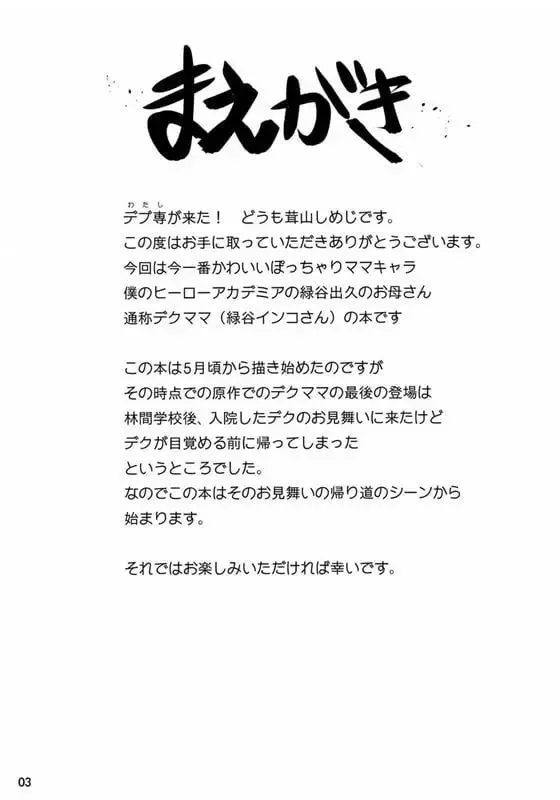 まえがき
わたし
デブ専が来た！　どうも茸山しめじです。
この度はお手に取っていただきありがとうございます。
今回は今一番かわいいぽっちゃりママキャラ
僕のヒーローアカデミアの緑谷出久のお母さん
通称デクママ（緑谷インコさん）の本です
この本は５月頃から描き始めたのですが
その時点での原作でのデクママの最後の登場は
林間学校後、入院したデクのお見舞いに来たけど
デクが目覚める前に帰ってしまった
というところでした。
なのでこの本はそのお見舞いの帰り道のシーンから
始まります。
それではお楽しみいただければ幸いです。
03